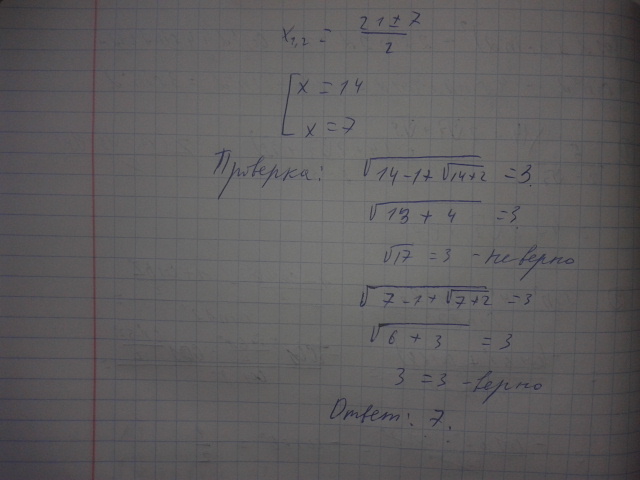 x₁,₂ = (21 ± 7)/2
[ x = 14
x = 7
Проверка: √(14-1+√(14+2)) = 3
√(13 + 4) = 3
√17 = 3 - неверно
√(7-1+√(7+2)) = 3
√(6 + 3) = 3
3 = 3 - верно
Ответ: 7.